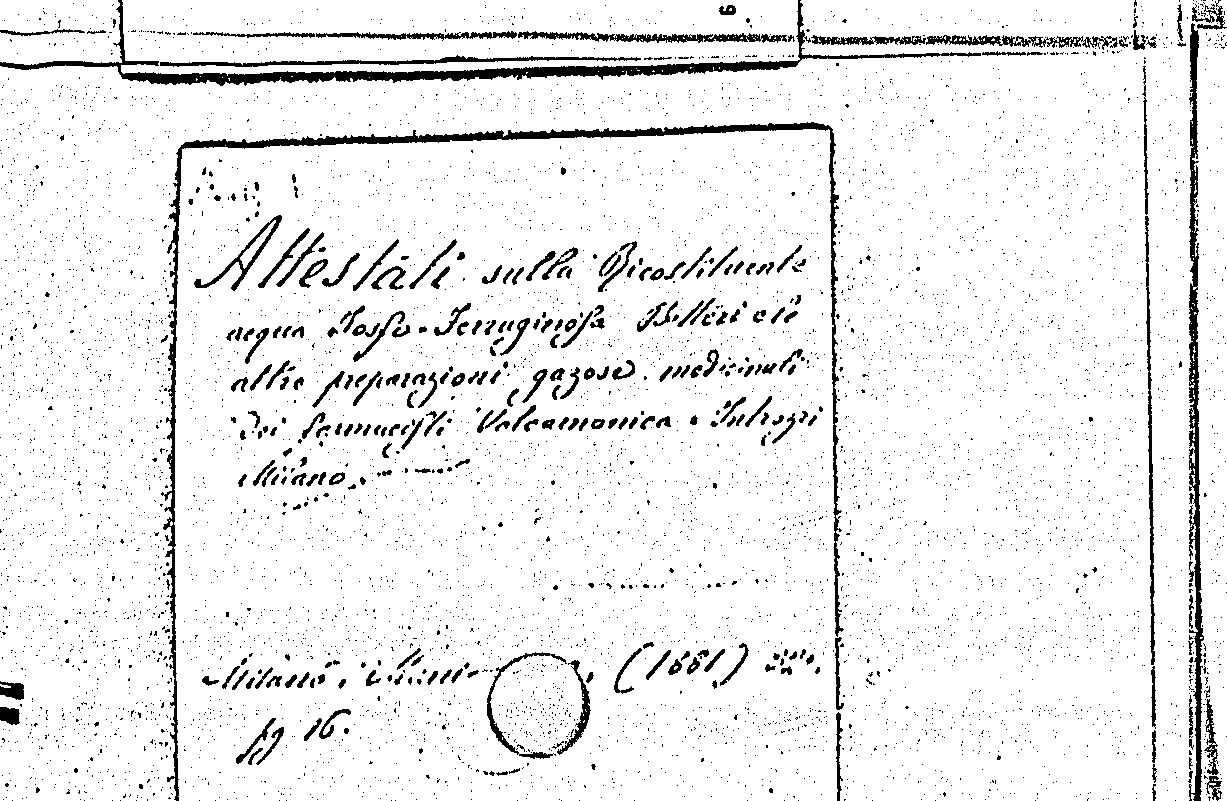 6
Attestati sulla Ricostituente
acqua Fosfo-Ferruginosa
altre preparazioni gazose medicinali
Dei farmacisti Valcamonica e Introzzi
Milano
Milano, (1881)
pg 16.